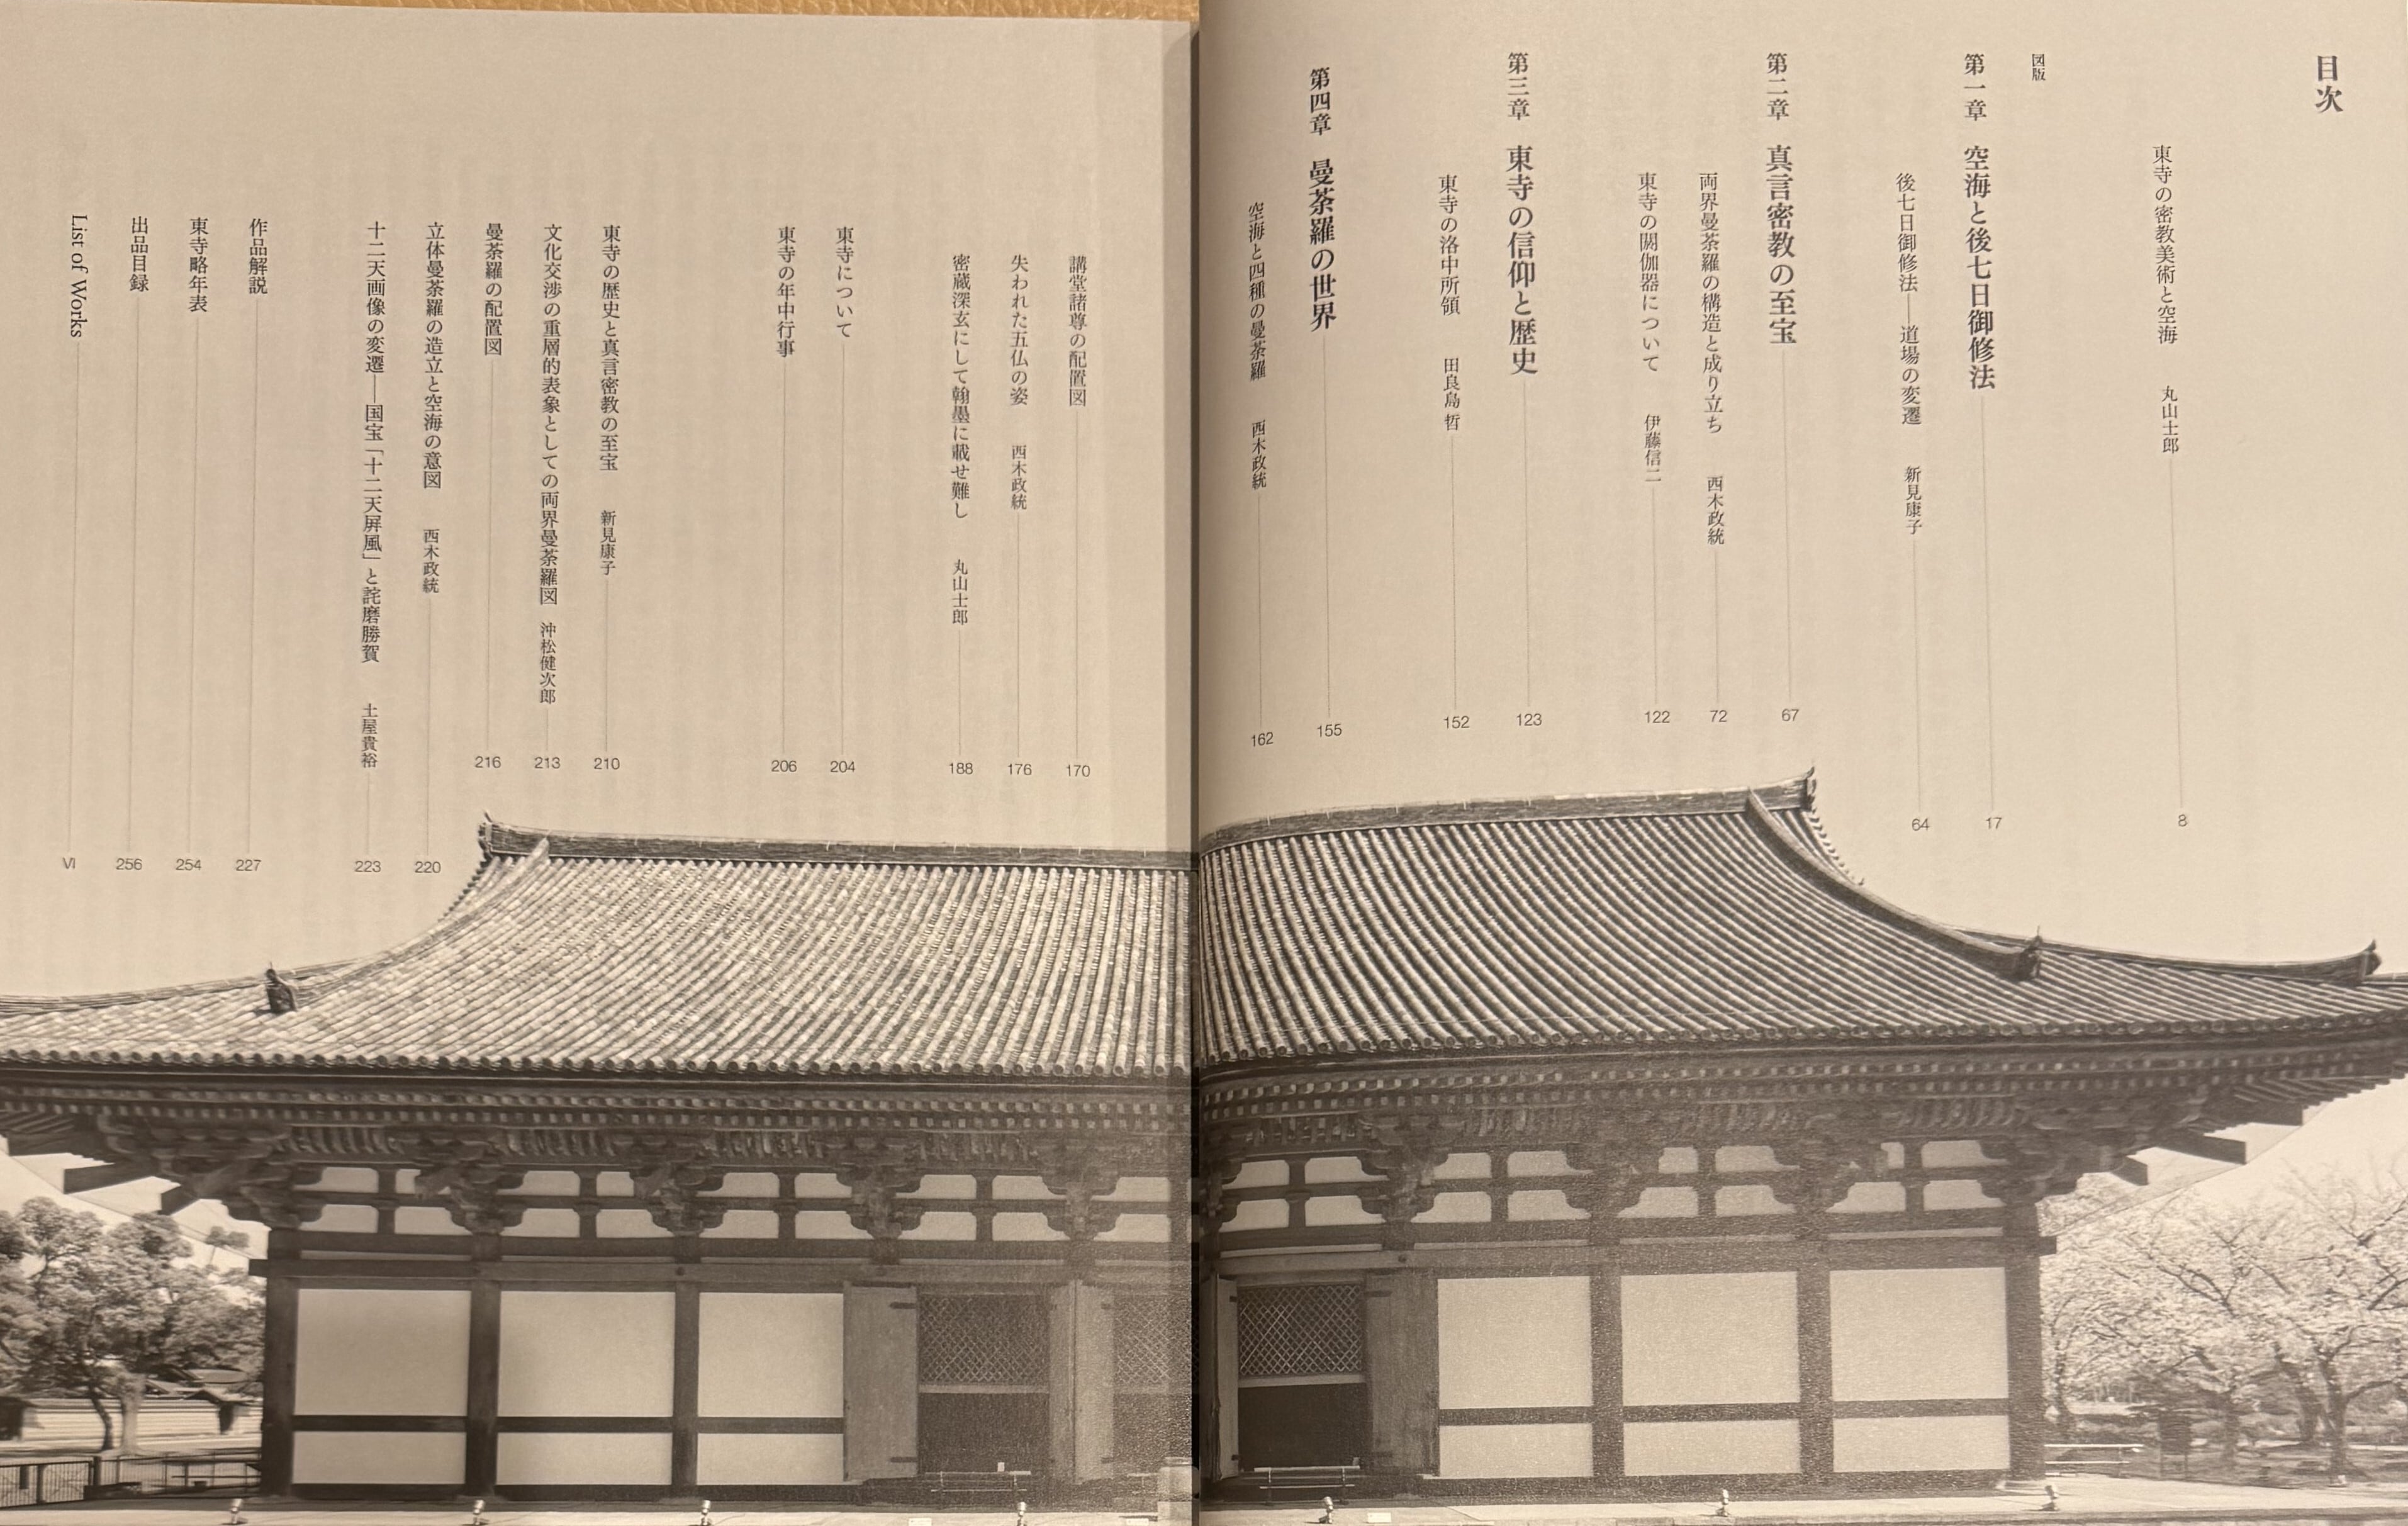 目次
東寺の密教美術と空海　丸山士郎 8
図版
第一章　空海と後七日御修法 17
後七日御修法――道場の変遷　新見康子 64
第二章　真言密教の至宝 67
両界曼荼羅の構造と成り立ち　西木政統 72
東寺の閼伽器について　伊藤信二 122
第三章　東寺の信仰と歴史 123
東寺の洛中所領　田良島 哲 152
第四章　曼荼羅の世界 155
空海と四種の曼荼羅　西木政統 162
講堂諸尊の配置図 170
失われた五仏の姿　西木政統 176
密蔵深玄にして翰墨に載せ難し　丸山士郎 188
東寺について 204
東寺の年中行事 206
東寺の歴史と真言密教の至宝　新見康子 210
文化交渉の重層的表象としての両界曼荼羅図　沖松健次郎 213
曼荼羅の配置図 216
立体曼荼羅の造立と空海の意図　西木政統 220
十二天画像の変遷――国宝「十二天屛風」と詫磨勝賀　土屋貴裕 223
作品解説 227
東寺略年表 254
出品目録 256
List of Works VI